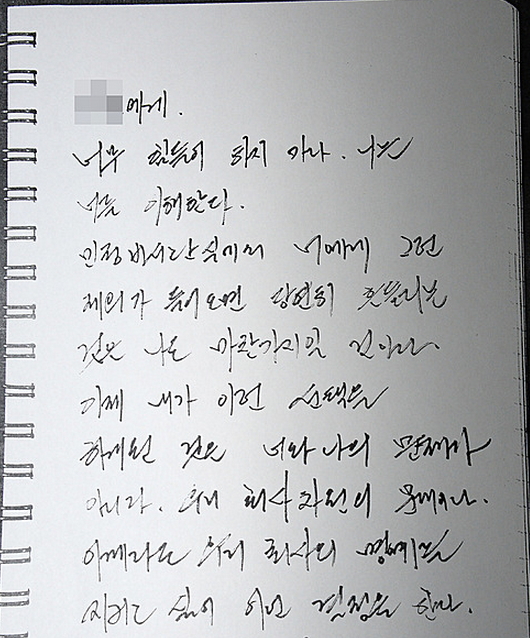 에게.
너무 힘들어 하지 마라. 나는
너를 이해한다.
민정비서관실에서 너에게 그런
제의가 들어오면 당연히 흔들리는
것은 나도 마찬가지일 것이다.
이제 내가 이런 선택을
하게된 것은 너와 나의 문제가
아니다. 우리 회사 차원의 문제이다.
이제라도 우리 회사의 명예를
지키고 싶어 이번 결정을 한다.